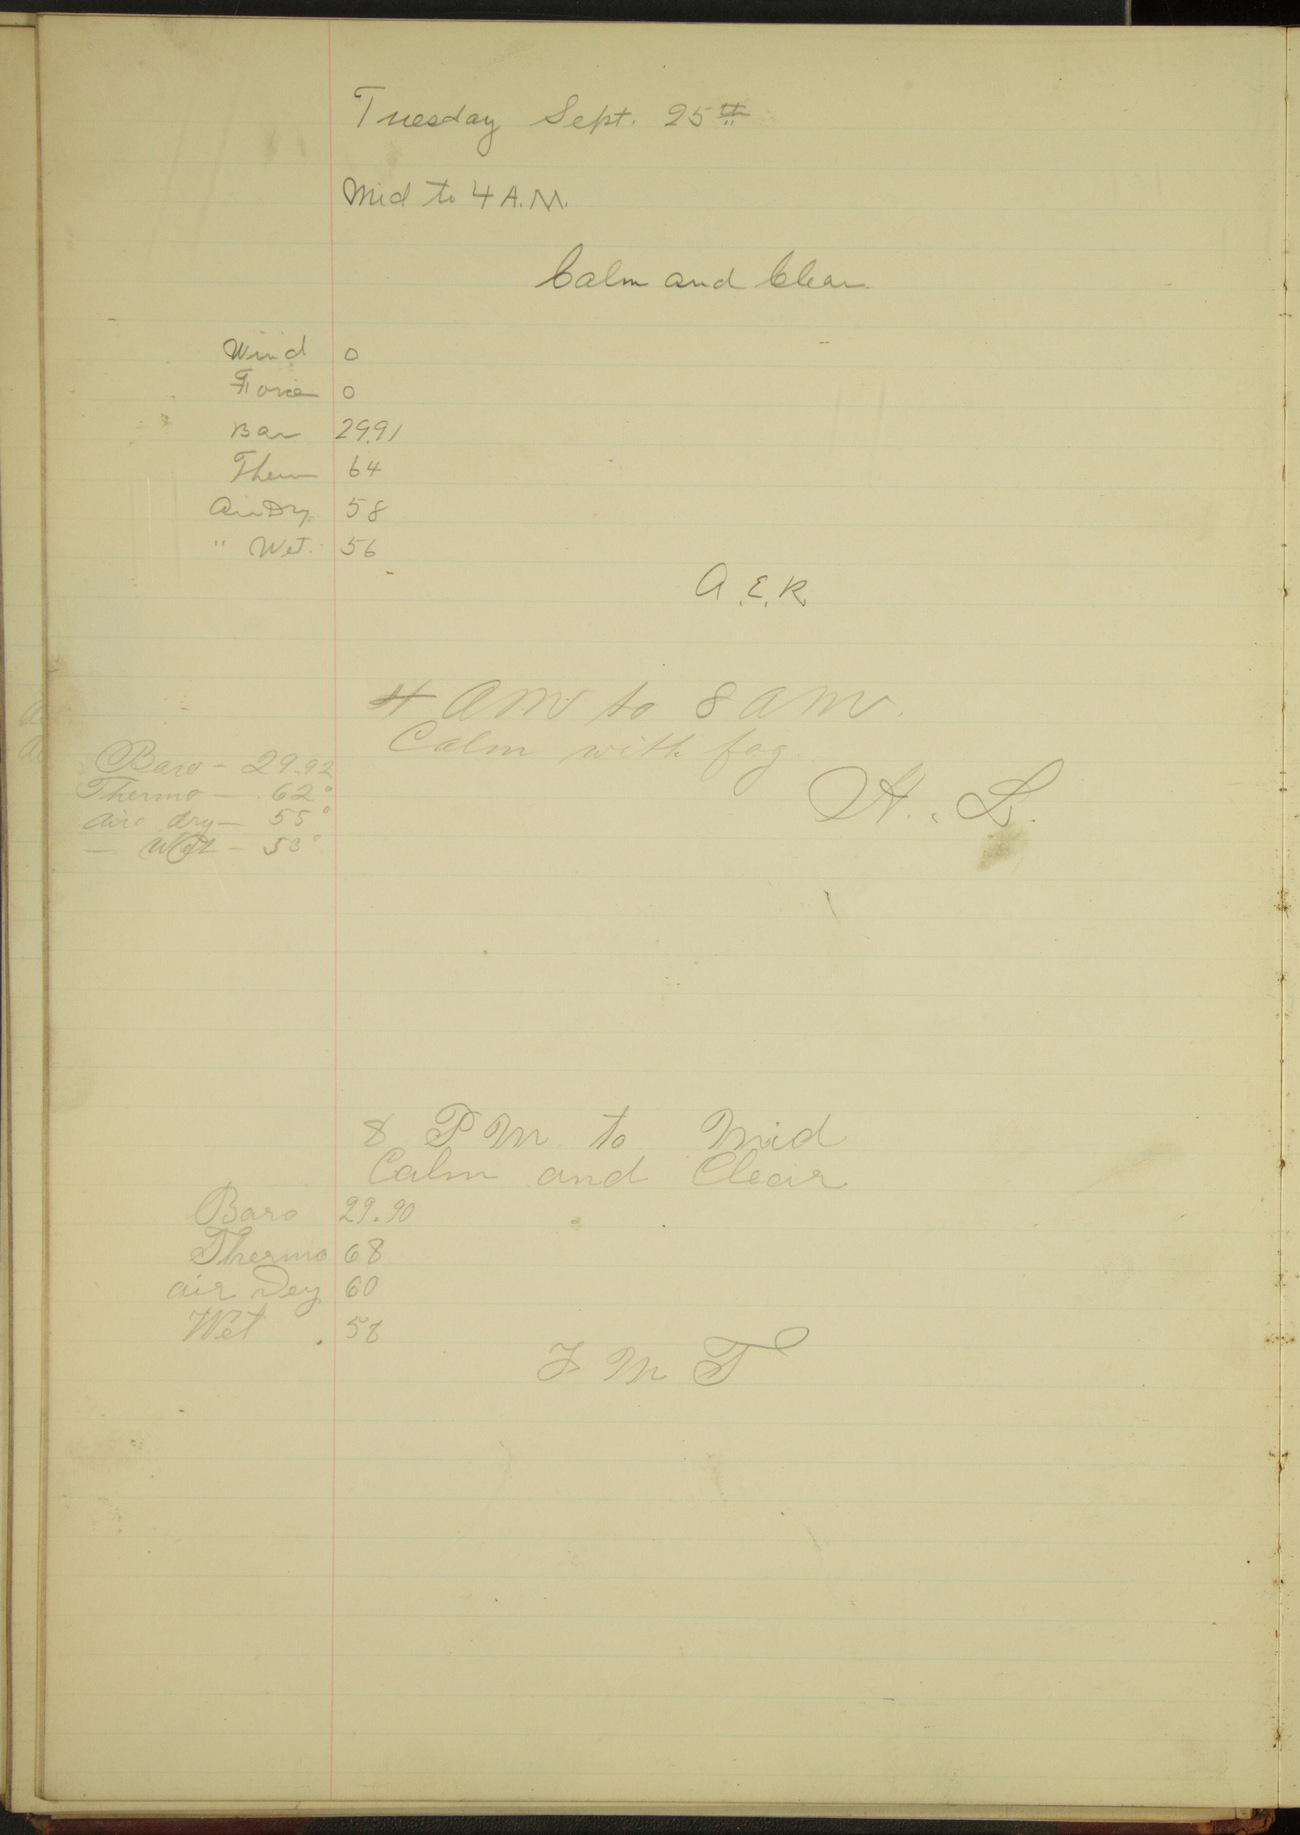 Tuesday Sept. 25th
Mid to 4 A.M.
Calm and Clear
Wind 0
Force 0
Bar 29.91
Ther 64
Air Dry 58
" Wet. 56
A.E.R.
4 AM to 8 AM.
Calm with fog
Baro - 29.92
Thermo - 62°
air dry - 55°
— Wet - 53°
H. L.
8 PM to Mid
Calm and Clear
Baro 29.90
Thermo 68
air Dry 60
Wet . 58
F M T